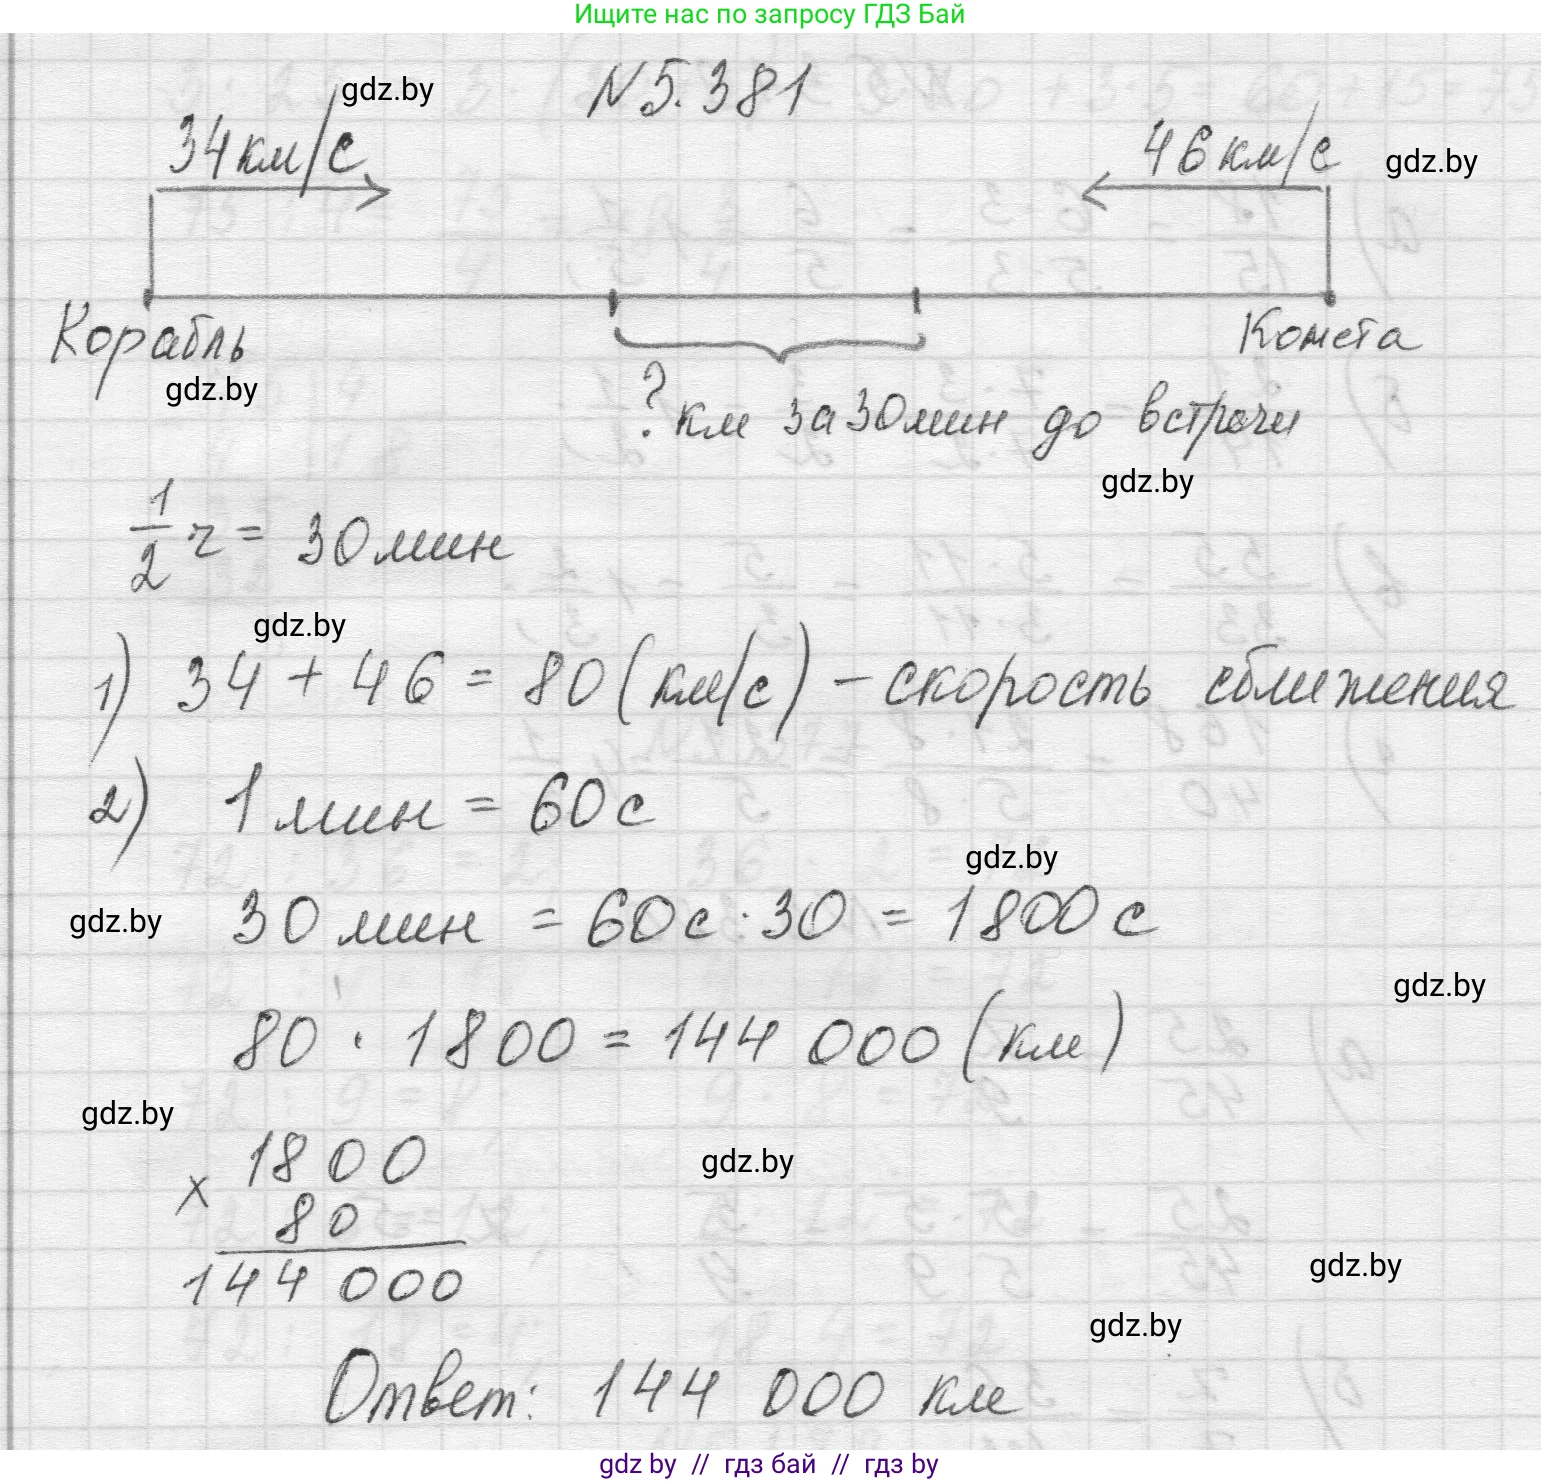 Ищите нас по запросу ГДЗ Бай
N 5.381
gdz.by
34 км/с
46 км/с
gdz.by
Корабль
Комета
gdz.by
? км за 30 мин до встречи
gdz.by
1/2 ч = 30 мин
gdz.by
1) 34 + 46 = 80 (км/с) – скорость сближения
2) 1 мин = 60 с
gdz.by
gdz.by
30 мин = 60 с · 30 = 1800 с
gdz.by
80 · 1800 = 144 000 (км)
gdz.by
1800
gdz.by
x
80
144 000
gdz.by
gdz.by
Ответ: 144 000 км
gdz by // гдз бай // гдз by